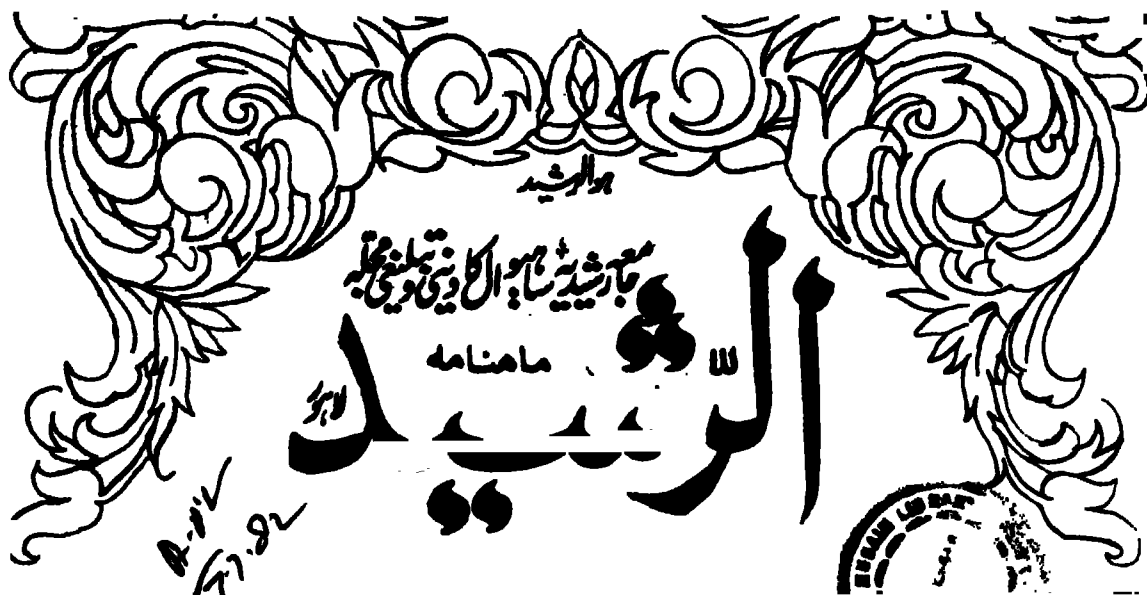 ہوالرشید
جامعہ رشیدیہ ساہیوال کا دینی و تبلیغی مجلہ
ماہنامہ
الرشید
لاہور
HUSAIN LIBRARY